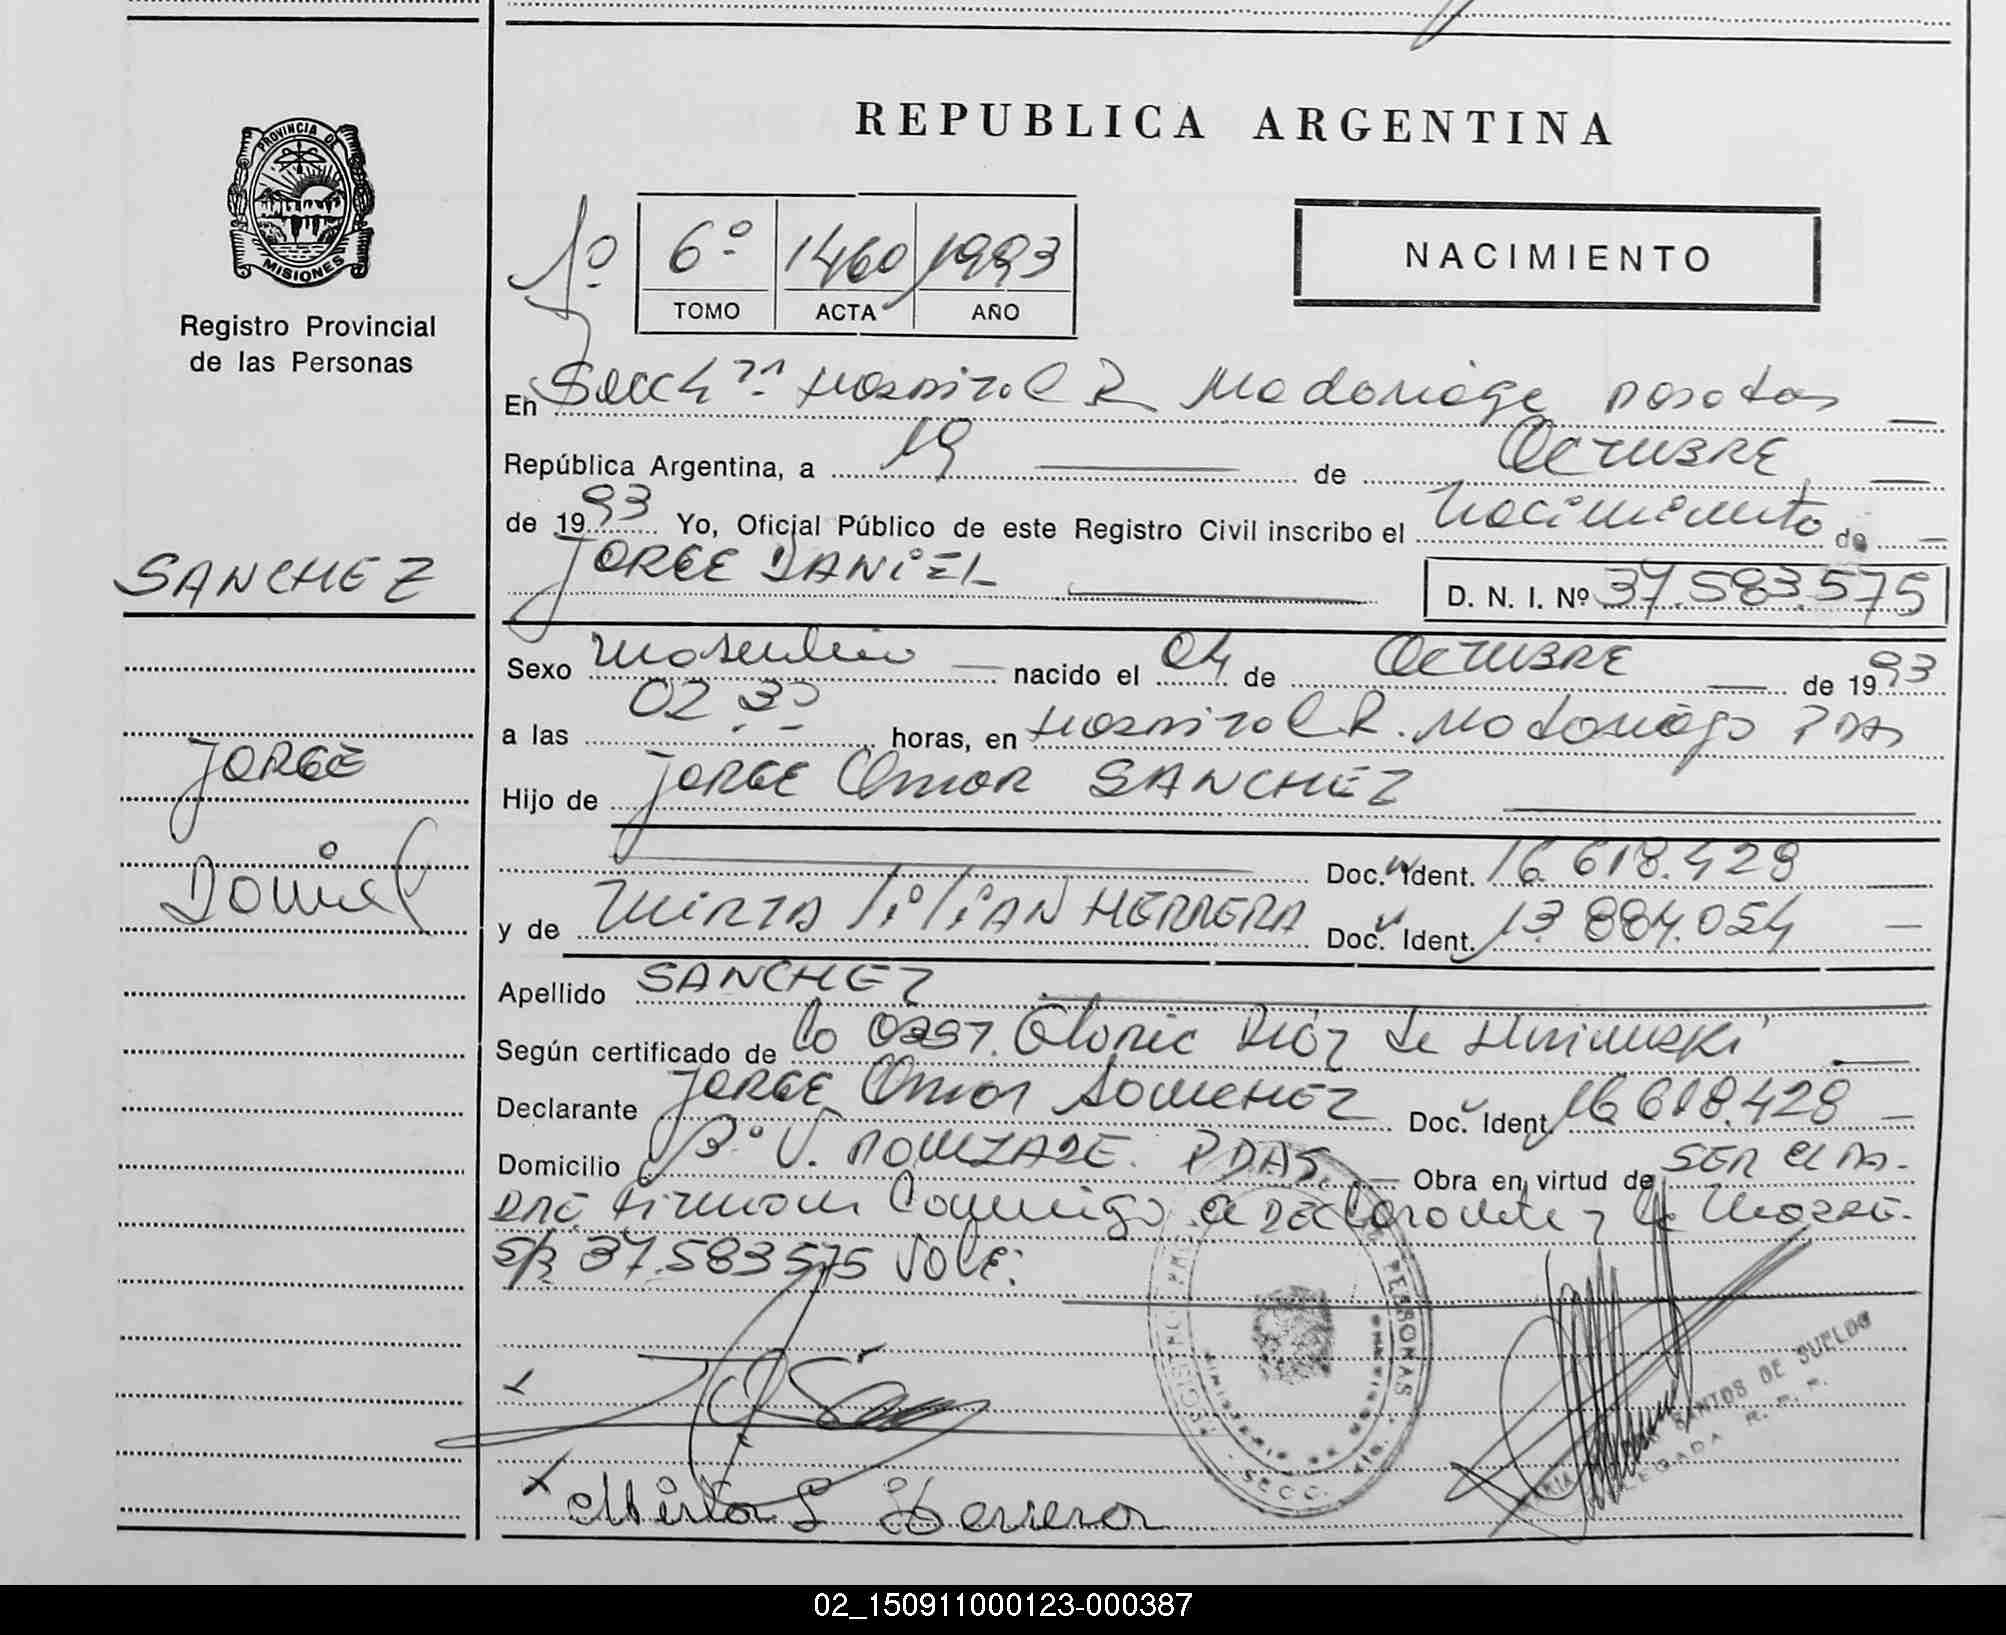 REPUBLICA ARGENTINA
PROVINCIA DE
MISIONES
Registro Provincial
de las Personas
6º 1460 1993
TOMO ACTA AÑO
NACIMIENTO
En Hospital R. Madariaga Posadas
República Argentina, a 19 de Octubre
de 1993 Yo, Oficial Público de este Registro Civil inscribo el Nacimiento de
JORGE DANIEL D. N. I. Nº 37.583.575
SANCHEZ
Sexo Masculino nacido el 04 de Octubre de 1993
a las 02 30 horas, en Hospital R. Madariaga PDAS
Hijo de JORGE Omar SANCHEZ
JORGE
Daniel
Doc. Ident. 16.618.428
y de MIRTA LILIAN HERRERA Doc. Ident. 13.884.054
Apellido SANCHEZ
Según certificado de la Obst. Gloria Diaz de
Declarante JORGE Omar SANCHEZ Doc. Ident. 16.618.428
Domicilio Bº PDAS. Obra en virtud de SER el PA-
DRE firman conmigo el DEClarante y la MADRE.
S/R 37.583575 VALE:
Mirta L Herrera
PERSONAS
SANTOS DE SUELDO
DELEGADA R. P. P.
02_150911000123-000387